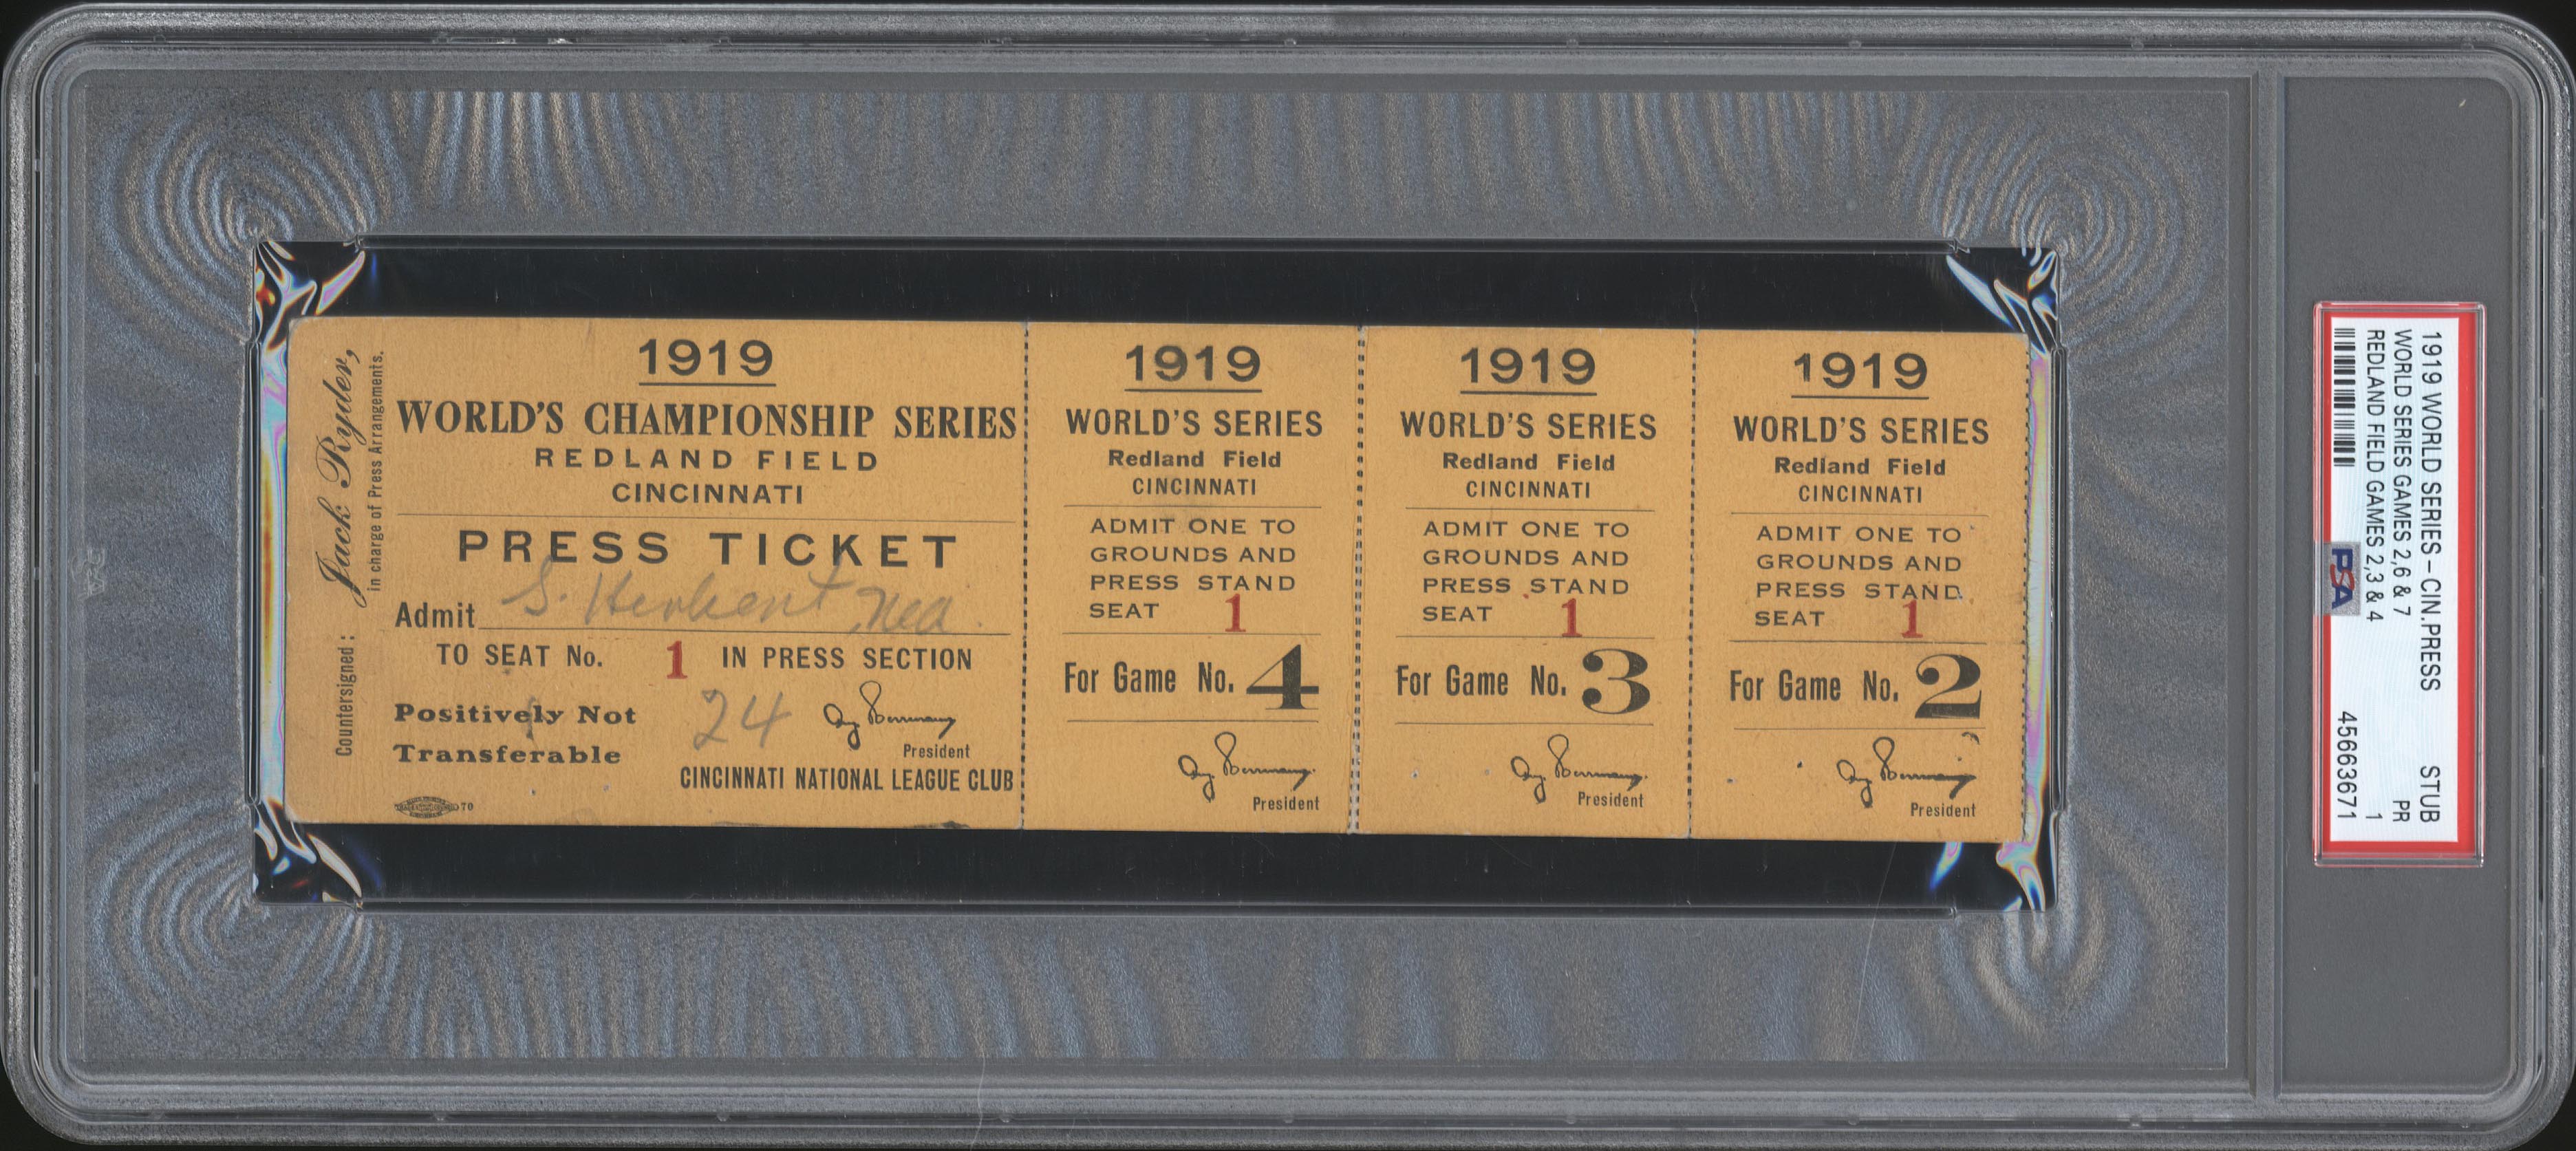 Countersigned:
Jack Ryder,
in charge of Press Arrangements.
1919
WORLD'S CHAMPIONSHIP SERIES
REDLAND FIELD
CINCINNATI
PRESS TICKET
Admit S. Herbert
TO SEAT No. 1 IN PRESS SECTION
24
Positively Not
Transferable
President
CINCINNATI NATIONAL LEAGUE CLUB
70
1919
WORLD'S SERIES
Redland Field
CINCINNATI
ADMIT ONE TO
GROUNDS AND
PRESS STAND
SEAT 1
For Game No. 4
President
1919
WORLD'S SERIES
Redland Field
CINCINNATI
ADMIT ONE TO
GROUNDS AND
PRESS STAND
SEAT 1
For Game No. 3
President
1919
WORLD'S SERIES
Redland Field
CINCINNATI
ADMIT ONE TO
GROUNDS AND
PRESS STAND
SEAT 1
For Game No. 2
President
1919 WORLD SERIES - CIN.PRESS STUB
WORLD SERIES GAMES 2,6 & 7 PR
REDLAND FIELD GAMES 2,3 & 4 1
PSA 45663671